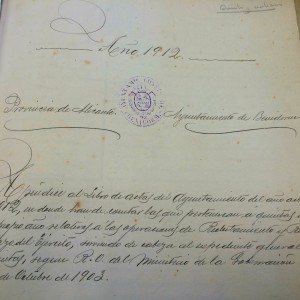 Quintas y
Año 1912.
AYUNTAMIENTO CONSTITUCIONAL
BENIDORM
Provincia de Alicante
Ayuntamiento de Benidorm
Apéndice al Libro de actas del Ayuntamiento del año
1912, en donde han de constar las que pertenecen a quintas
relativo a las operaciones de Reclutamiento y
del Ejército, sirviendo de cabeza al expediente general
según R.O. del Ministerio de la Gobernación
de Octubre de 1903.